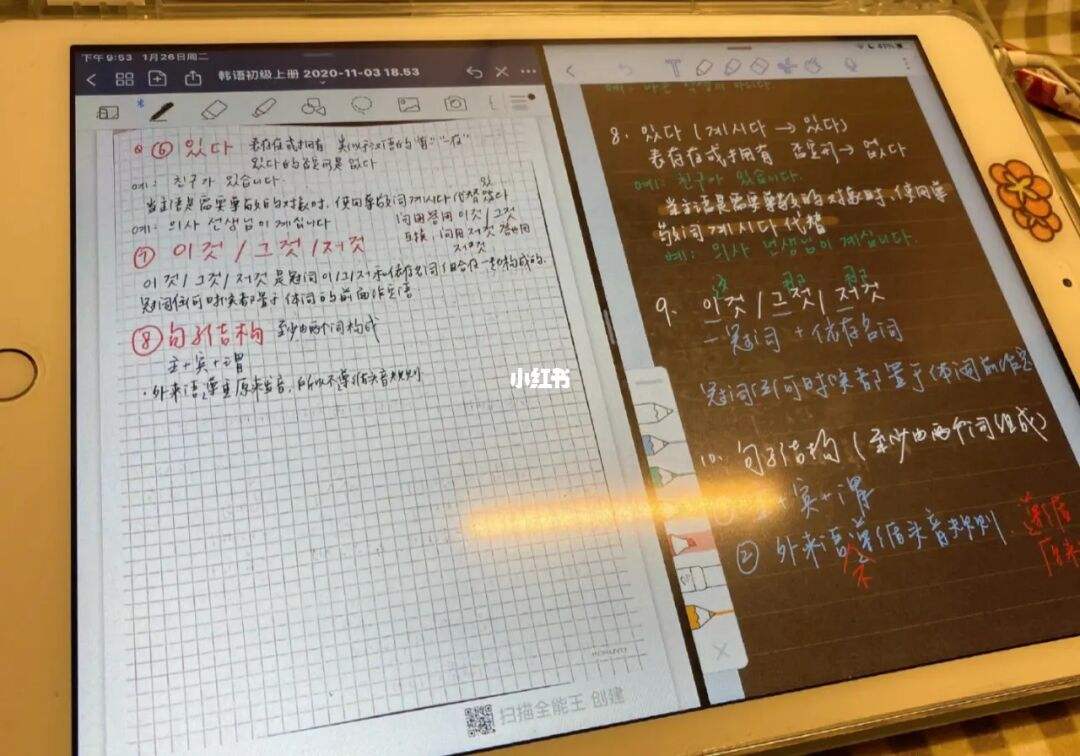 下午9:53 1月26日周二
韩语初级上册 2020-11-03 18.53
⑥ 있다 表存在或拥有 类似于汉语的"有""在"
있다的否定词是 없다
예: 친구가 있습니다.
当主语是需要尊敬的对象时,使用尊敬词 계시다 代替 있다
예: 의사 선생님이 계십니다
问用答用 이것/그것
互换,问用저것 答也用
저것
⑦ 이것/그것/저것
이것/그것/저것 是冠词 이/그/저 和依存名词 것 组合在一起构成的.
冠词任何时候都置于体词的前面作定语
⑧ 句子结构 至少由两个词构成
主+宾+谓
·外来语遵重原来发音,所以不遵循头音规则
KOKUYO
扫描全能王 创建
小红书
41%
8. 있다 (계시다 → 있다)
表存在或拥有 否定词→ 없다
예: 친구가 있습니다.
当主语是需要尊敬的对象时,使用尊
敬词 계시다 代替
예: 의사 선생님이 계십니다.
这
9. 이것/그것/저것
冠词 + 依存名词
冠词任何时候都置于体词前作定
10. 句子结构 (至少由两个词组成)
主+宾+谓
② 外来语遵循头音规则 遵循
不 原来